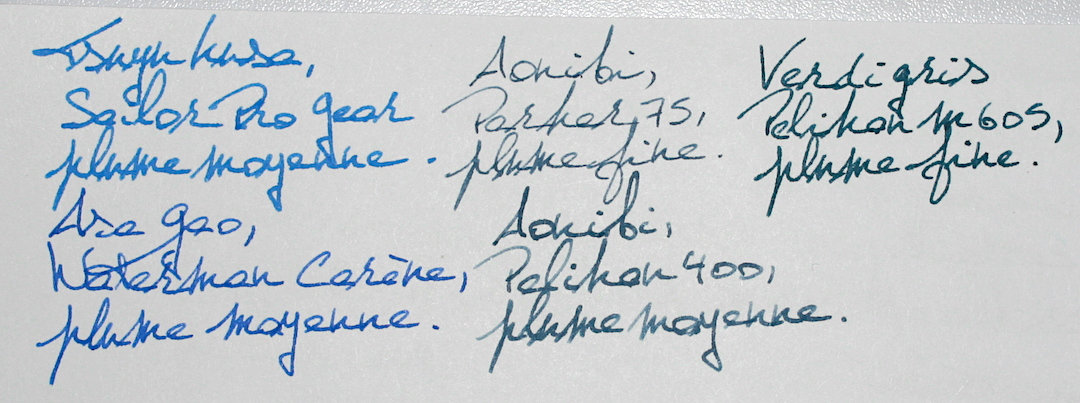 Tsuyu kusa,
Sailor Pro gear
plume moyenne.
Aonibi,
Parker 75,
plume fine.
Verdigris
Pelikan M605,
plume fine.
Asa gao,
Waterman Carène,
plume moyenne.
Aonibi,
Pelikan 400,
plume moyenne.